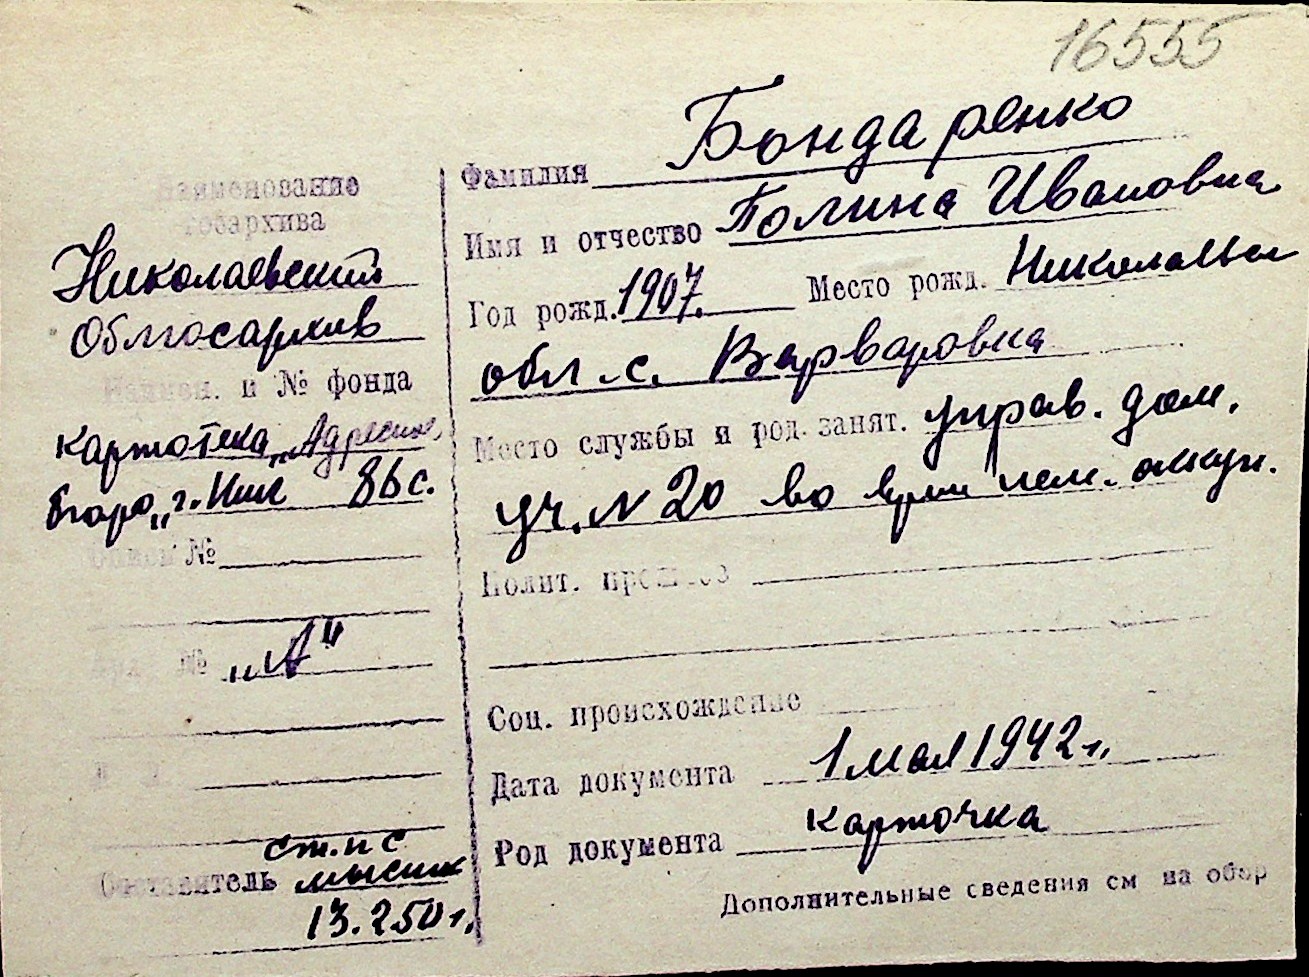 16555
Наименование
гобархива
Николаевский
Облгосархив
Наимен. и № фонда
картотека „Адресное
бюро„ г. Ник 86 с.
Описи №
№ „А"
ст. н с
Составитель
13.2 50 г.
Фамилия Бондаренко
Имя и отчество Полина Ивановна
Год рожд. 1907. Место рожд. Николаевск
обл. с. Варваровка
Место службы и род занят. управ. дом.
уч. № 20 во врем нем. оккуп.
Полит. прошлое
Соц. происхождение
Дата документа 1 мая 1942 г.
Род документа карточка
Дополнительные сведения см на обор